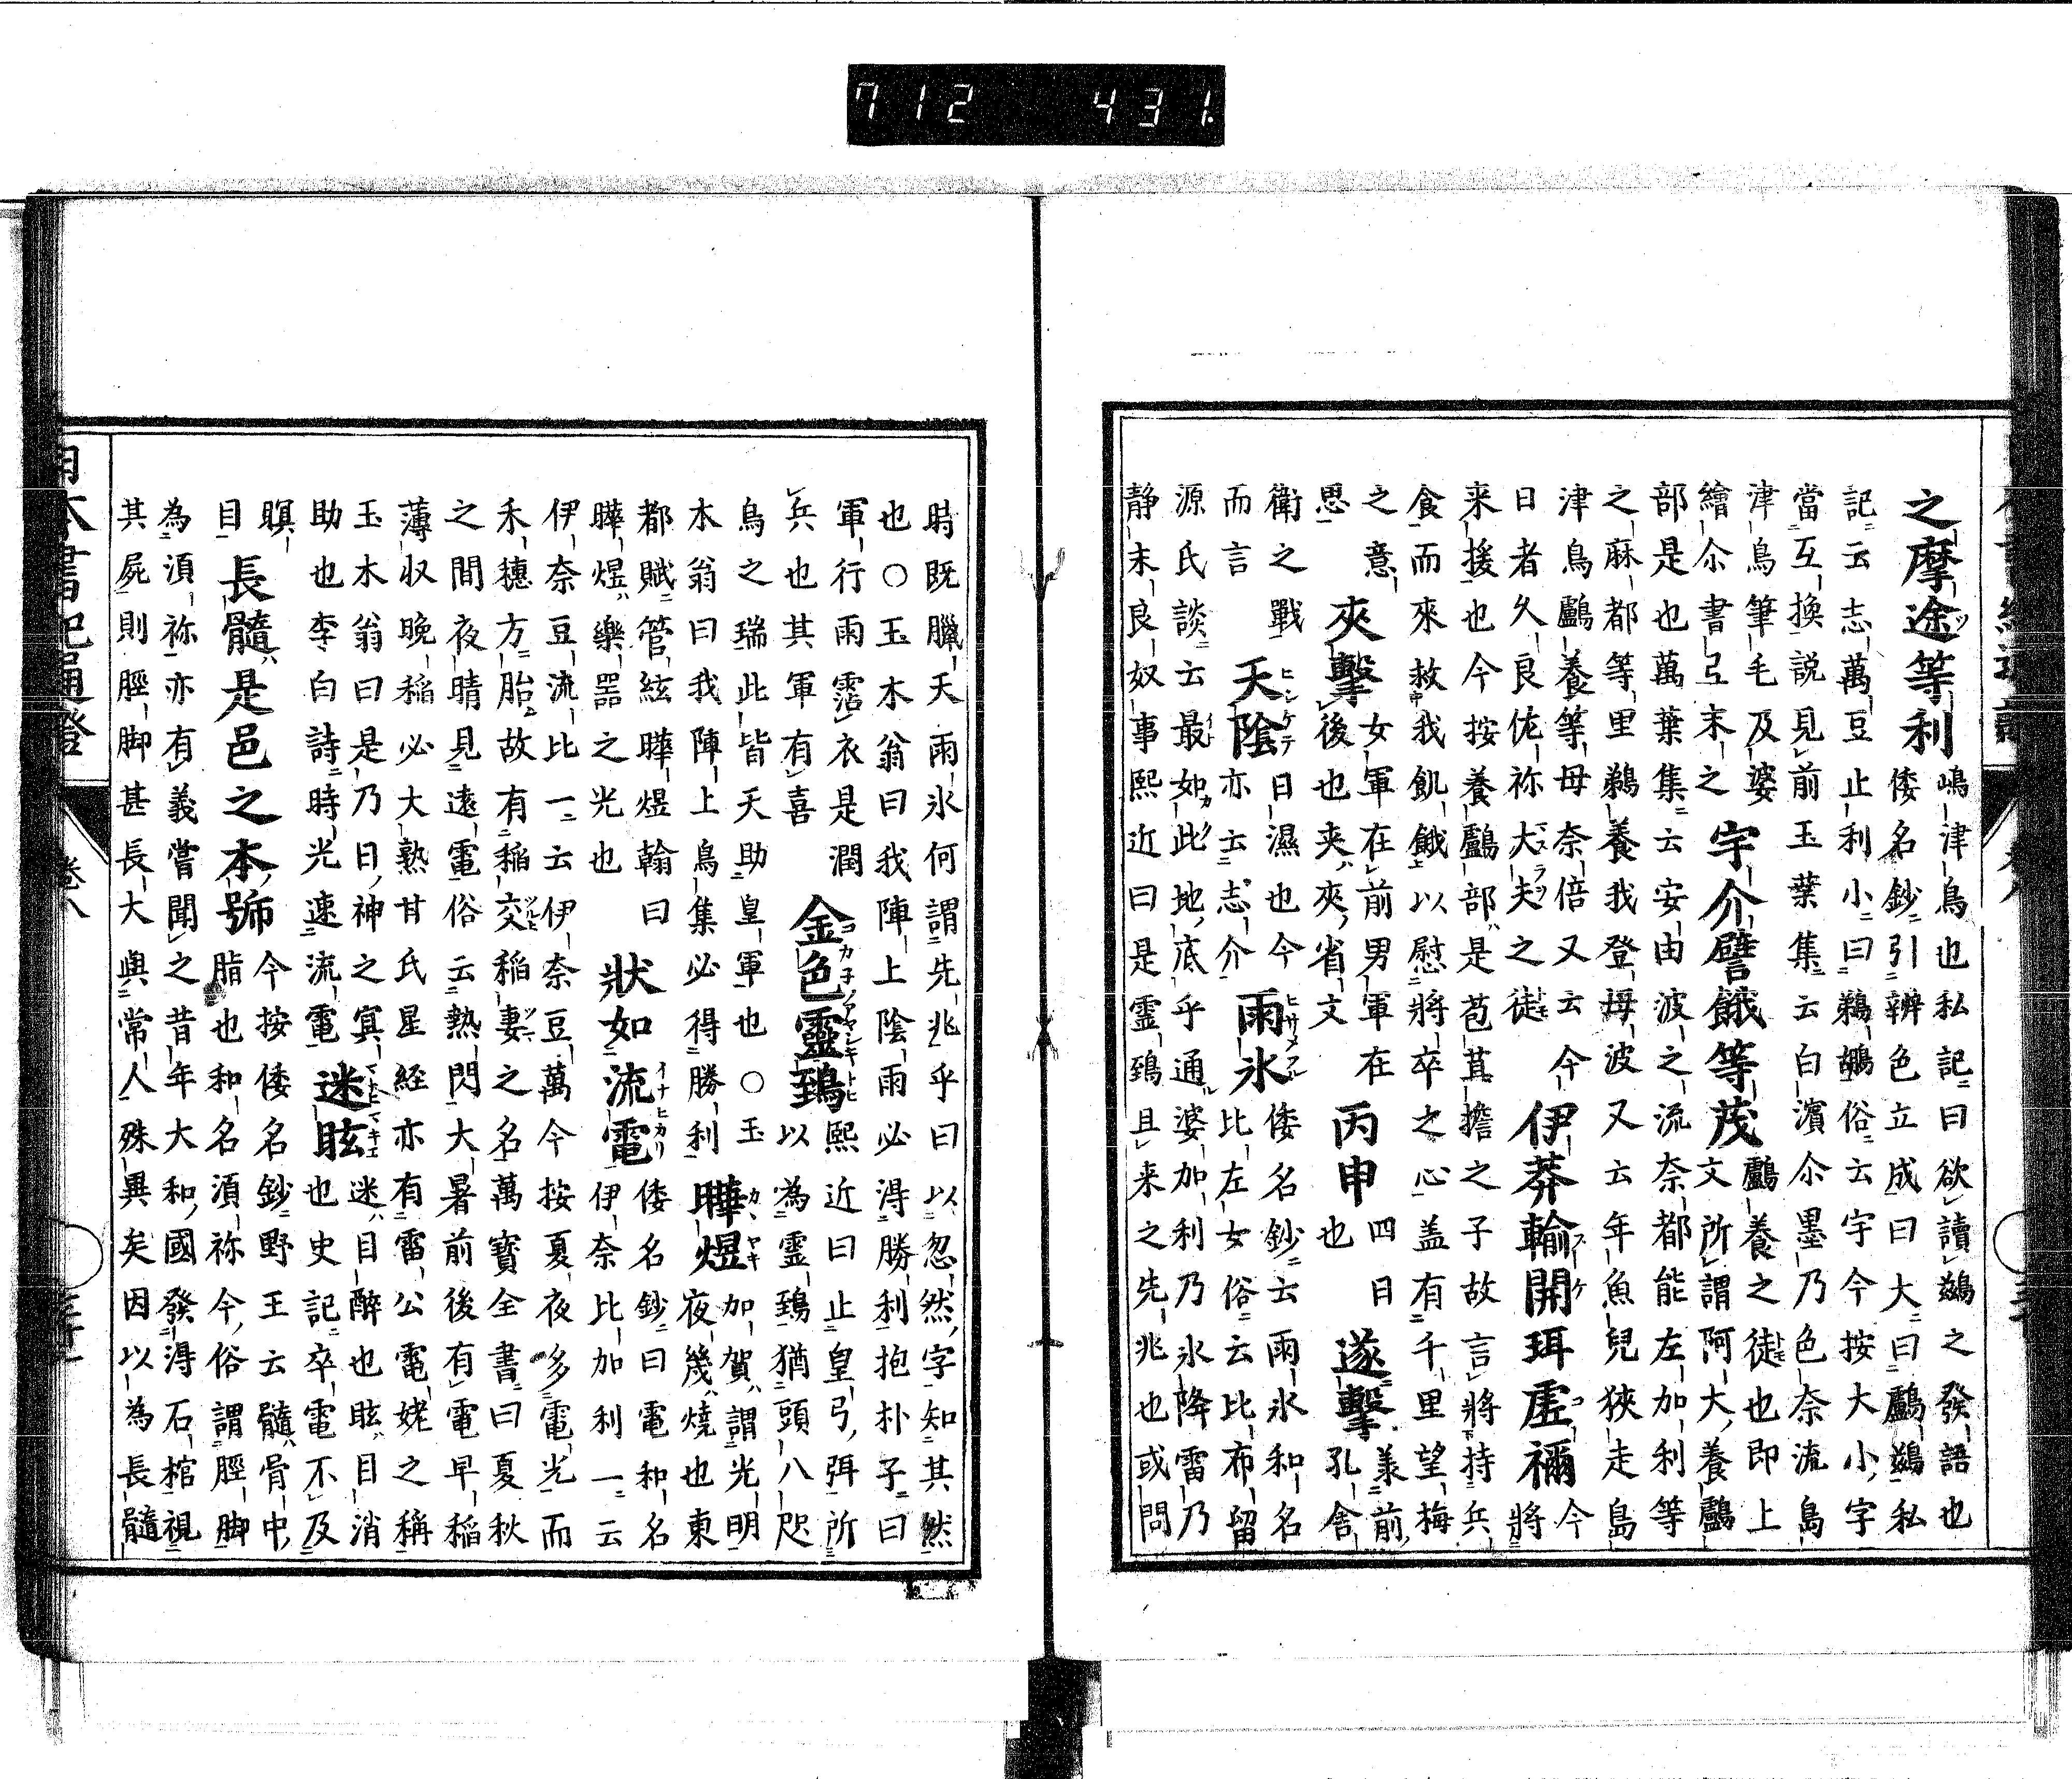 712 431.
之摩途等利
嶋津鳥也私記曰欲讀鷀之發語也
倭名鈔引辨色立成曰大曰鸕鷀私
記云志萬豆止利小曰鵜鶘俗云宇今按大小字
當互換説見前玉葉集云白濱尒墨乃色奈流島
津鳥筆毛及婆
繪尒書弖末之
宇介譬餓等茂
鸕養之徒也即上
文所謂阿大養鸕
部是也萬葉集云安由波之流奈都能左加利等
之麻都等里鵜養我登母波又云年魚兒狹走島
津鳥鸕養等母奈倍又云今
日者久良佐祢大夫之徒
伊莽輸開珥虚禰
今
將
来援也今按養鸕部是苞苴擔之子故言將持兵
食而來救我飢餓以慰將卒之心盖有千里望梅
之意
思
夾擊
女軍在前男軍在
後也夹夾省文
丙申
四日
也
遂擊
義前
孔舍
衛之戰
而言
天陰
日濕也今
亦云志介
雨氷
倭名鈔云雨氷和名
比左女俗云比布留
源氏談云最如此地底乎通婆加利乃氷降雷乃
静末良奴事熙近曰是靈鵄且来之先兆也或問
時既臘天雨氷何謂先兆乎曰以忽然字知其然
也○玉木翁曰我陣上陰雨必得勝利抱朴子曰
軍行雨霑衣是潤
兵也其軍有喜
金色靈鵄
熙近曰止皇弓弭所
以為靈鵄猶頭八咫
烏之瑞此皆天助皇軍也○玉
木翁曰我陣上鳥集必得勝利
曄煜
加加賀謂光明
夜幾燒也東
都賦管絃曄煜翰曰
曄煜樂器之光也
狀如流電
倭名鈔曰電和名
伊奈比加利一云
伊奈豆流比一云伊奈豆萬今按夏夜多電光而
禾穗方胎故有稲交稲妻之名萬寶全書曰夏秋
之間夜晴見遠電俗云熱閃大暑前後有電早稲
薄収晩稲必大熟甘氏星経亦有雷公電姥之稱
玉木翁曰是乃日神之冥
助也李白詩時光速流電
迷眩
迷目醉也眩目消
也史記卒電不及
瞑
目
長髓是邑之本號
今按倭名鈔野王云髓骨中
脂也和名湏祢今俗謂脛脚
為湏祢亦有義嘗聞之昔年大和國發得石棺視
其屍則脛脚甚長大與常人殊異矣因以為長髓
日本書紀通證
卷八